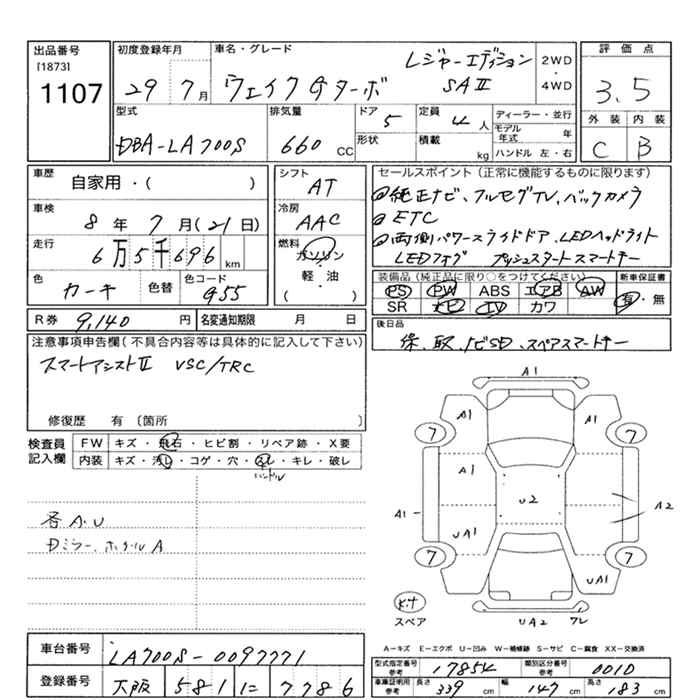 出品番号 初度登録年月 車名・グレード 評価点
[1873]
1107
29 7月 ウェイク Gターボ レジャーエディション SAⅡ 2WD・4WD 3.5
外装 内装
C B
型式 排気量 ドア 定員 ディーラー・並行
DBA-LA700S 660 CC 5 4人 モデル年式 年
形状 積載 kg ハンドル 左・右
車歴 自家用・( ) シフト AT
車検 8年7月(21日) 冷房 AAC
走行 6万5千696km 燃料 ガソリン・軽・油 ( )
色 カーキ 色替 色コード G55
R券 9,140円 名変通知期限 月 日
セールスポイント(正常に機能するものに限ります)
純正ナビ、フルセグTV、バックカメラ
ETC
両側パワースライドドア、LEDヘッドライト
LEDフォグ プッシュスタートスマートキー
装備品(純正品に限り○をつけてください) 新車保証書
PS PW ABS エアB AW 有・無
SR ナビ TV カワ
後日品
保、取、ナビSD、スペアスマートキー
注意事項申告欄(不具合内容等は具体的に記入して下さい)
スマートアシストⅡ VSC/TRC
修復歴 有〔箇所 〕
検査員記入欄 FW キズ・飛石・ヒビ割・リペア跡・X要
内装 キズ・汚れ・コゲ・穴・スレ・キレ・破レ
ハンドル
各A.U
Dミラー、ホイールA
A1
A1 A1
7 7
A1
A1 U2 A2
UA1
7 7
UA1
Kit
スペア UA2 フレ
A=キズ E=エクボ U=凹み W=補修跡 S=サビ C=腐食 XX=交換済
車台番号 LA700S-0097771
登録番号 大阪 581 に 7786
型式指定番号 参考 17854 類別区分番号 参考 0010
車庫証明用 参考 長さ 339cm 幅 147cm 高さ 183cm